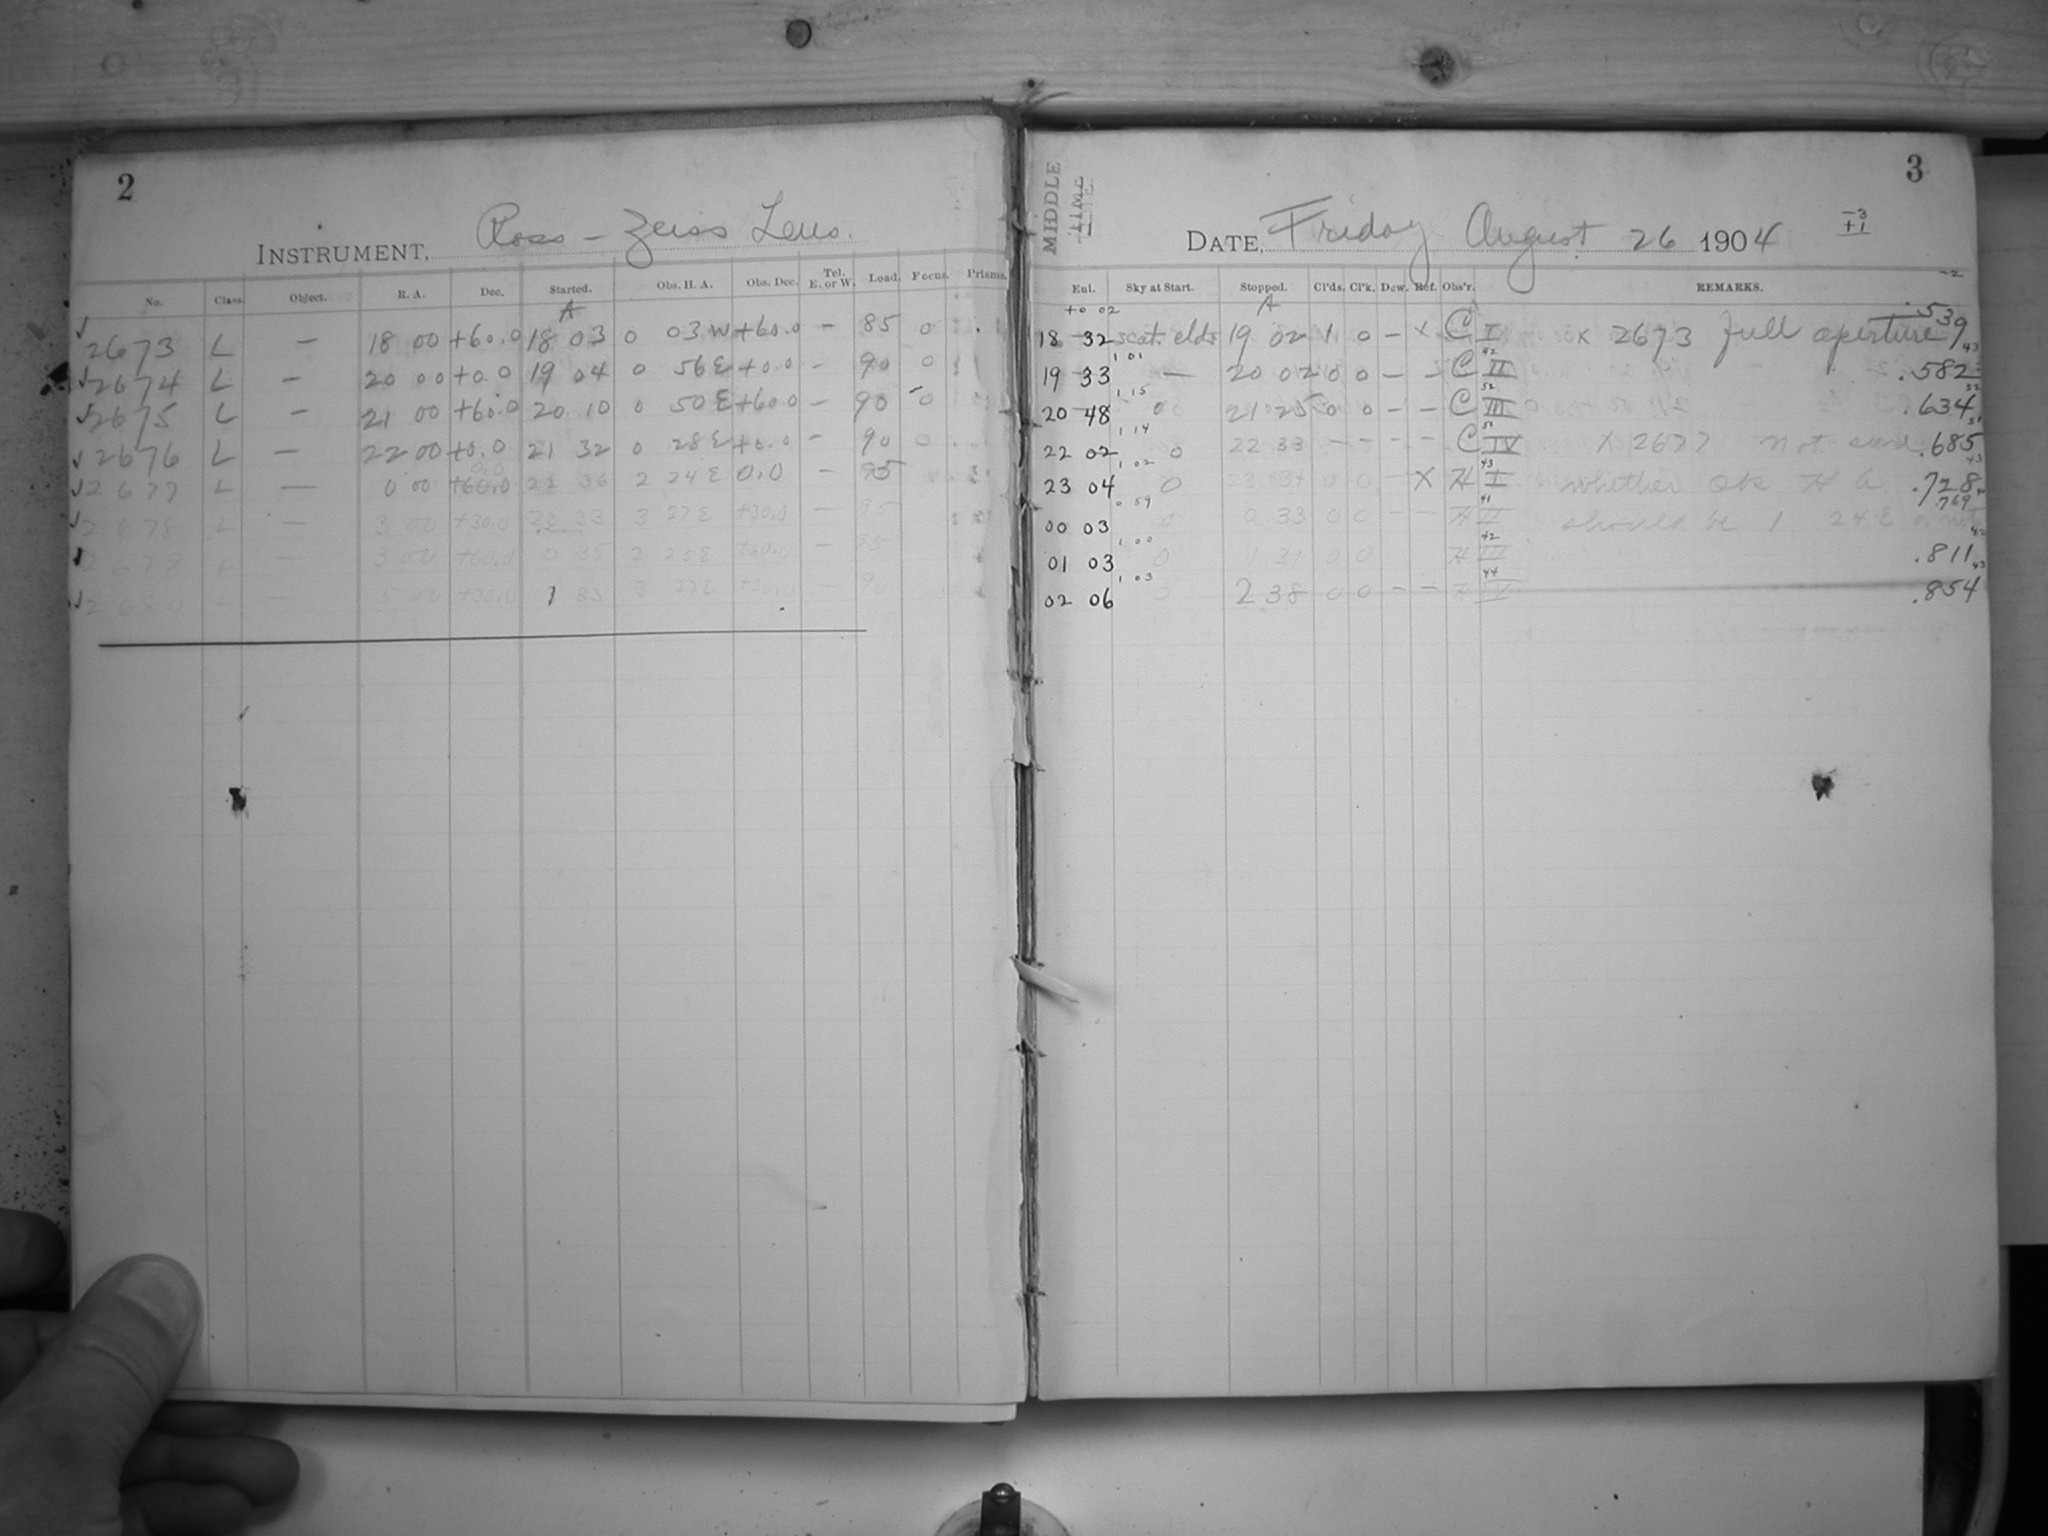 2
INSTRUMENT, Ross - Zeiss Lens.
No. Class. Object. R. A. Dec. Started. Obs. H. A. Obs. Dec. Tel. E. or W. Load. Focus. Prisms.
A
2673 L — 18 00 +60.0 18 03 0 03 W +60.0 - 85 0
2674 L — 20 00 +0.0 19 04 0 56 E +0.0 - 90 0
2675 L — 21 00 +60.0 20 10 0 50 E +60.0 - 90 0
2676 L — 22 00 +0.0 21 32 0 28 E +0.0 - 90 0
0.0
2677 L — 0 00 +60.0 22 36 2 24 E 0.0 - 95
2678 L — 3 00 +30.0 23 33 3 27 E +30.0 - 95
2679 L — 3 00 +60.0 0 35 2 25 E +60.0 - 95
2680 L — 5 00 +30.0 1 33 3 27 E +30.0 - 90
3
MIDDLE TIME
DATE, Friday August 26 1904
-3
+1
-2
Eul. Sky at Start. Stopped. Cl'ds. Cl'k. Dew. Ref. Obs'r. REMARKS.
+0 02 A
18 32 scat. clds 19 02 1 0 - x C I x 2673 full aperture .539
1 01 42 43
19 33 — 20 02 0 0 - - C II .582
1 15 52 52
20 48 0 21 25 0 0 - - C III .634
1 14 51 51
22 02 0 22 33 - - - - C IV x 2677 not sure .685
1 02 43 43
23 04 0 23 34 0 0 - X H I whether obs H A .728
0 59 41 .769
00 03 0 0 33 0 0 - - H II should be 1 24 E or not
1 00 42 42
01 03 0 1 31 0 0 H III .811
1 03 44 43
02 06 0 2 38 0 0 - - H IV .854